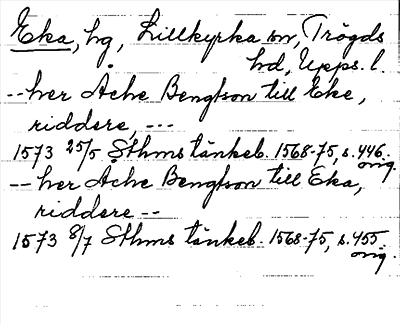 Eka, hg, Lillkyrka sn, Trögds
hd, Upps. l.
-- her Åche Bengtson till Eke,
riddere, ---
1573 25/5 Sthms tänkeb. 1568-75, s. 446.
orig.
-- her Ache Bengtson till Eka,
riddere --
1573 8/7 Sthms tänkeb. 1568-75, s. 455.
orig.